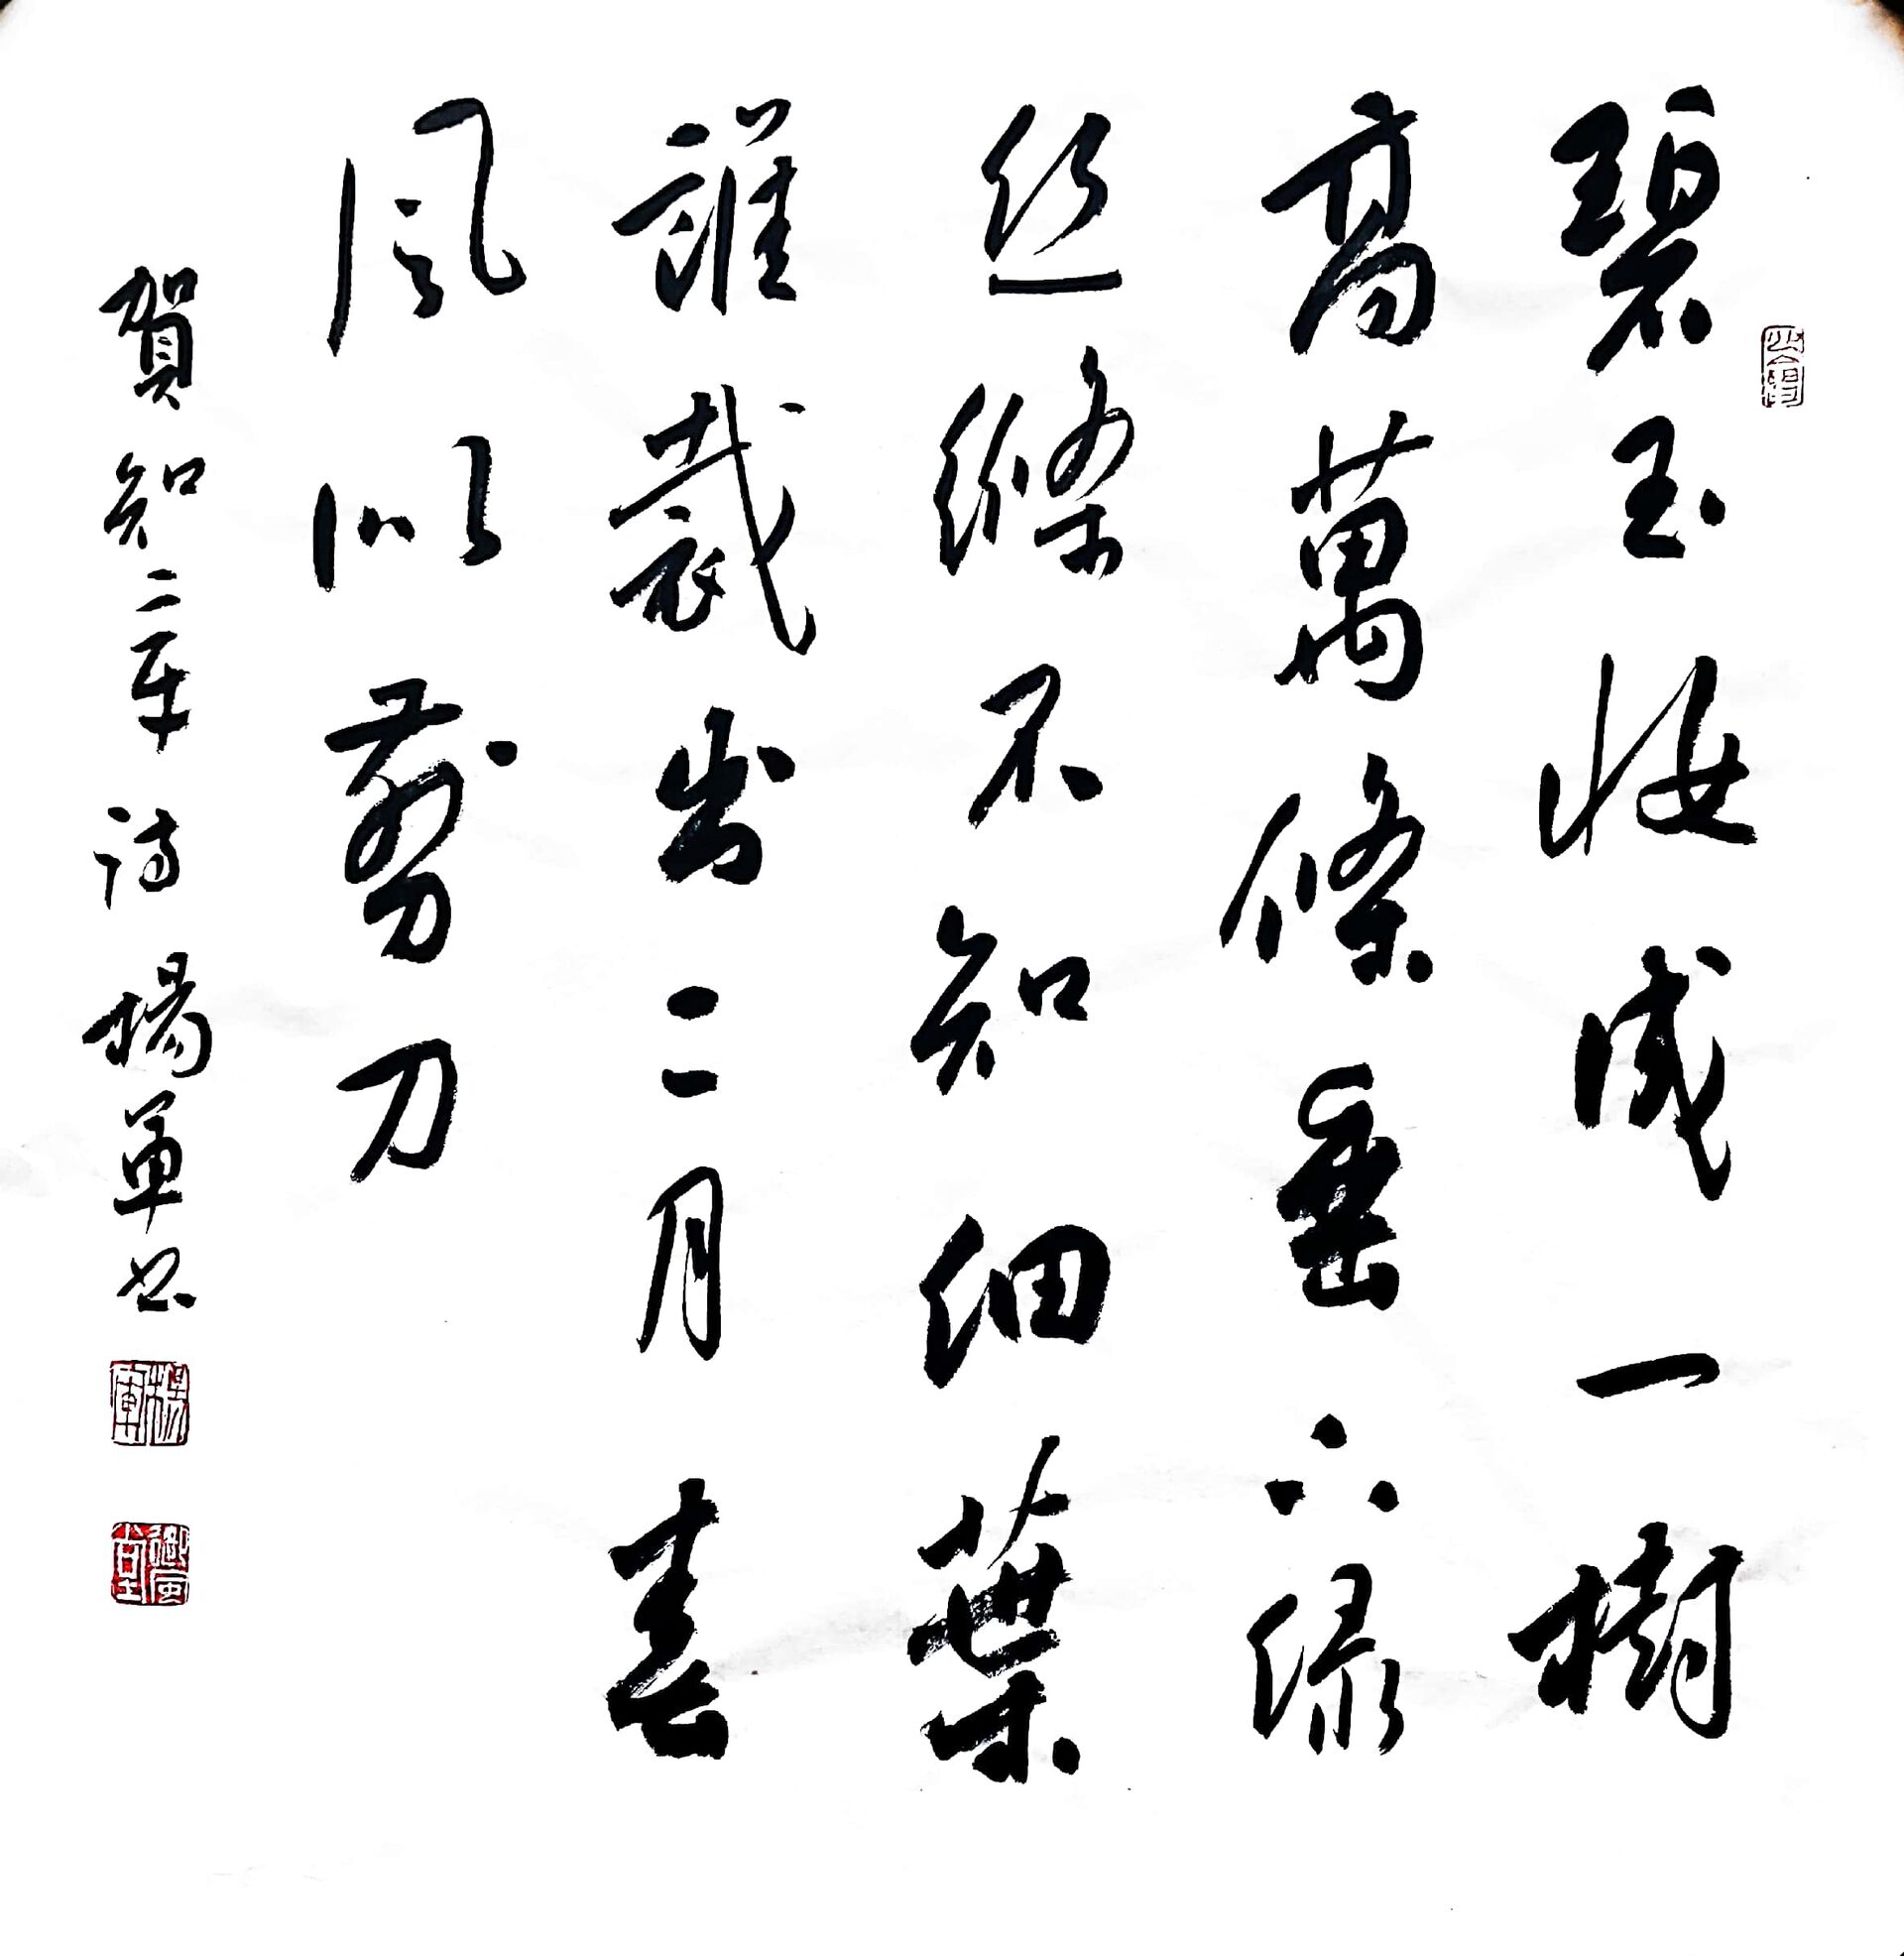 碧玉妝成一樹
高萬條垂下綠
丝絛不知細葉
誰裁出二月春
風似剪刀
賀知章詩 楊軍书
楊軍